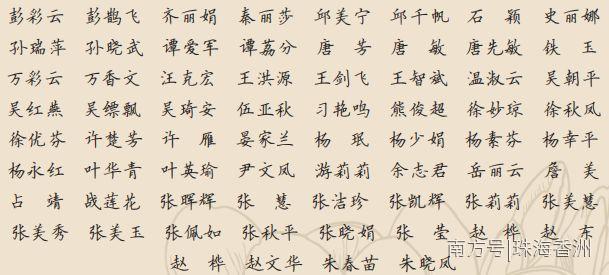 彭彩云 彭鹊飞 齐丽娟 秦丽莎 邱美宁 邱千帆 石颖 史丽娜
孙瑞萍 孙晓武 谭爱军 谭荔分 唐芳 唐敏 唐先敏 铁玉
万彩云 万香文 汪克宏 王洪源 王剑飞 王智斌 温淑云 吴朝平
吴红燕 吴缥飘 吴琦安 伍亚秋 习艳鸣 熊俊超 徐妙琼 徐秋凤
徐优芬 许楚芳 许雁 晏家兰 杨珉 杨少娟 杨素芬 杨幸平
杨永红 叶华青 叶英瑜 尹文凤 游莉莉 余志君 岳丽云 詹美
占靖 战莲花 张晖辉 张慧 张洁珍 张凯辉 张莉莉 张美慧
张美秀 张美玉 张佩如 张秋平 张晓娟 张莹 赵桦 赵东
赵桦 赵文华 朱春苗 朱晓凤
南方号|珠海香洲